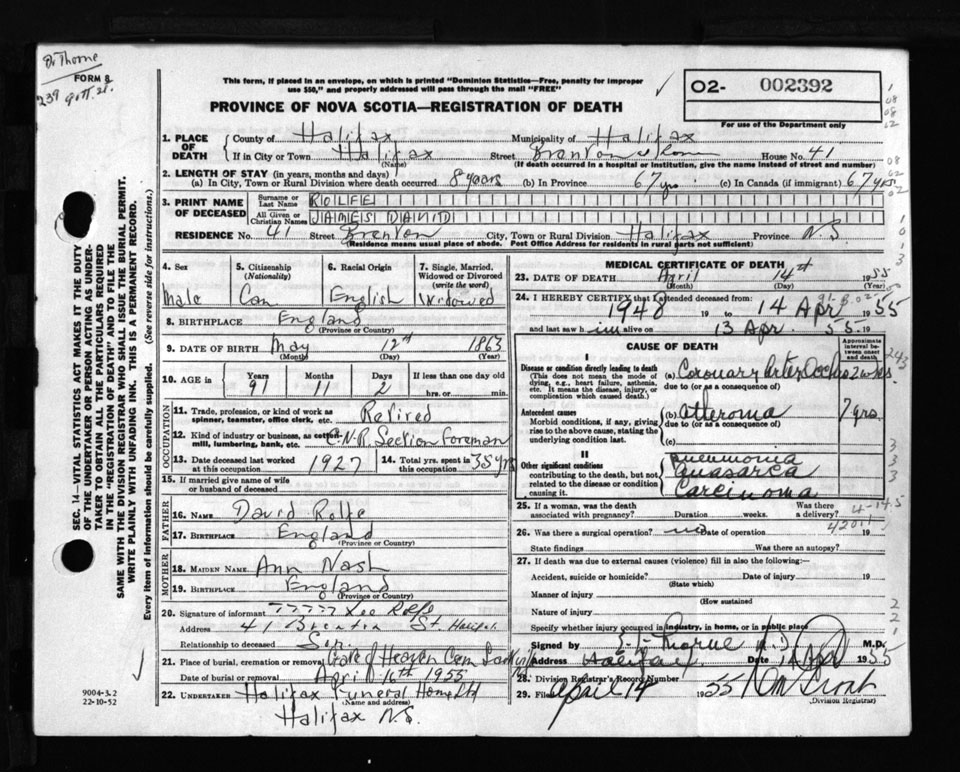 Dr Thorne
FORM 8
239 gott. st.
This form, if placed in an envelope, on which is printed "Dominion Statistics—Free, penalty for improper
use $50," and properly addressed will pass through the mail "FREE"
PROVINCE OF NOVA SCOTIA—REGISTRATION OF DEATH
02- 002392
For use of the Department only
1. PLACE OF DEATH
County of Halifax Municipality of Halifax
If in City or Town Halifax Street Brenton House No. 41
(Name) (If death occurred in a hospital or institution, give the name instead of street and number)
2. LENGTH OF STAY (in years, months and days)
(a) In City, Town or Rural Division where death occurred 8 years (b) In Province 67 yrs (c) In Canada (if immigrant) 67 yrs.
3. PRINT NAME OF DECEASED
Surname or Last Name ROLFE
All Given or Christian Names JAMES DAVID
RESIDENCE No. 41 Street Brenton City, Town or Rural Division Halifax Province N.S.
(Residence means usual place of abode. Post Office Address for residents in rural parts not sufficient)
SEC. 14—VITAL STATISTICS ACT MAKES IT THE DUTY
OF THE UNDERTAKER OR PERSON ACTING AS UNDER-
TAKER TO OBTAIN ALL THE PARTICULARS REQUIRED
IN THE "REGISTRATION OF DEATH" AND TO FILE THE
SAME WITH THE DIVISION REGISTRAR WHO SHALL ISSUE THE BURIAL PERMIT.
WRITE PLAINLY WITH UNFADING INK. THIS IS A PERMANENT RECORD.
Every item of information should be carefully supplied. (See reverse side for instructions.)
4. Sex
Male
5. Citizenship
(Nationality)
Can
6. Racial Origin
English
7. Single, Married,
Widowed or Divorced
(write the word)
Widowed
8. BIRTHPLACE England
(Province or Country)
9. DATE OF BIRTH May 12th 1863
(Month) (Day) (Year)
10. AGE IN Years Months Days If less than one day old
91 11 2 hrs. or min.
OCCUPATION
11. Trade, profession, or kind of work as
spinner, teamster, office clerk, etc. Retired
12. Kind of industry or business, as cotton
mill, lumbering, bank, etc. C.N.R. Section Foreman
13. Date deceased last worked
at this occupation 1927
14. Total yrs. spent in
this occupation 35 yrs
15. If married give name of wife
or husband of deceased
FATHER
16. NAME David Rolfe
17. BIRTHPLACE England
(Province or Country)
MOTHER
18. MAIDEN NAME Ann Nash
19. BIRTHPLACE England
(Province or Country)
20. Signature of informant Leo Rolfe
Address 41 Brenton St. Halifax
Relationship to deceased Son
21. Place of burial, cremation or removal Gate of Heaven Cem
Date of burial or removal April 16th 1955
22. UNDERTAKER Halifax Funeral Home Ltd
(Name and address)
Halifax N.S.
9004-3.2
22-10-52
MEDICAL CERTIFICATE OF DEATH
23. DATE OF DEATH April 14st 1955
(Month) (Day) (Year)
24. I HEREBY CERTIFY that I attended deceased from:
1948 19 to 14 Apr 1955
and last saw him alive on 13 Apr. 55. 19
CAUSE OF DEATH
Approximate
interval be-
tween onset
and death
I
Disease or condition directly leading to death
(This does not mean the mode of
dying, e.g., heart failure, asthenia,
etc. It means the disease, injury, or
complication which caused death.)
(a) Coronary Artery 2 wks
due to (or as a consequence of)
Antecedent causes
Morbid conditions, if any, giving
rise to the above cause, stating the
underlying condition last.
(b) Atheroma 7 yrs
due to (or as a consequence of)
(c)
II
Other significant conditions
contributing to the death, but not
related to the disease or condition
causing it.
Pneumonia
Anasarca
Carcinoma
25. If a woman, was the death
associated with pregnancy? Duration weeks. Was there
a delivery?
26. Was there a surgical operation? no Date of operation 19
State findings Was there an autopsy?
27. If death was due to external causes (violence) fill in also the following:—
Accident, suicide or homicide? Date of injury 19
(State which)
Manner of injury
(How sustained
Nature of injury
Specify whether injury occurred in industry, in home, or in public place
Signed by Thorne M.D.
Address Halifax Date 14 Apl 1955
28. Division Registrar's Record Number
29. Filed April 14 1955
(Division Registrar)